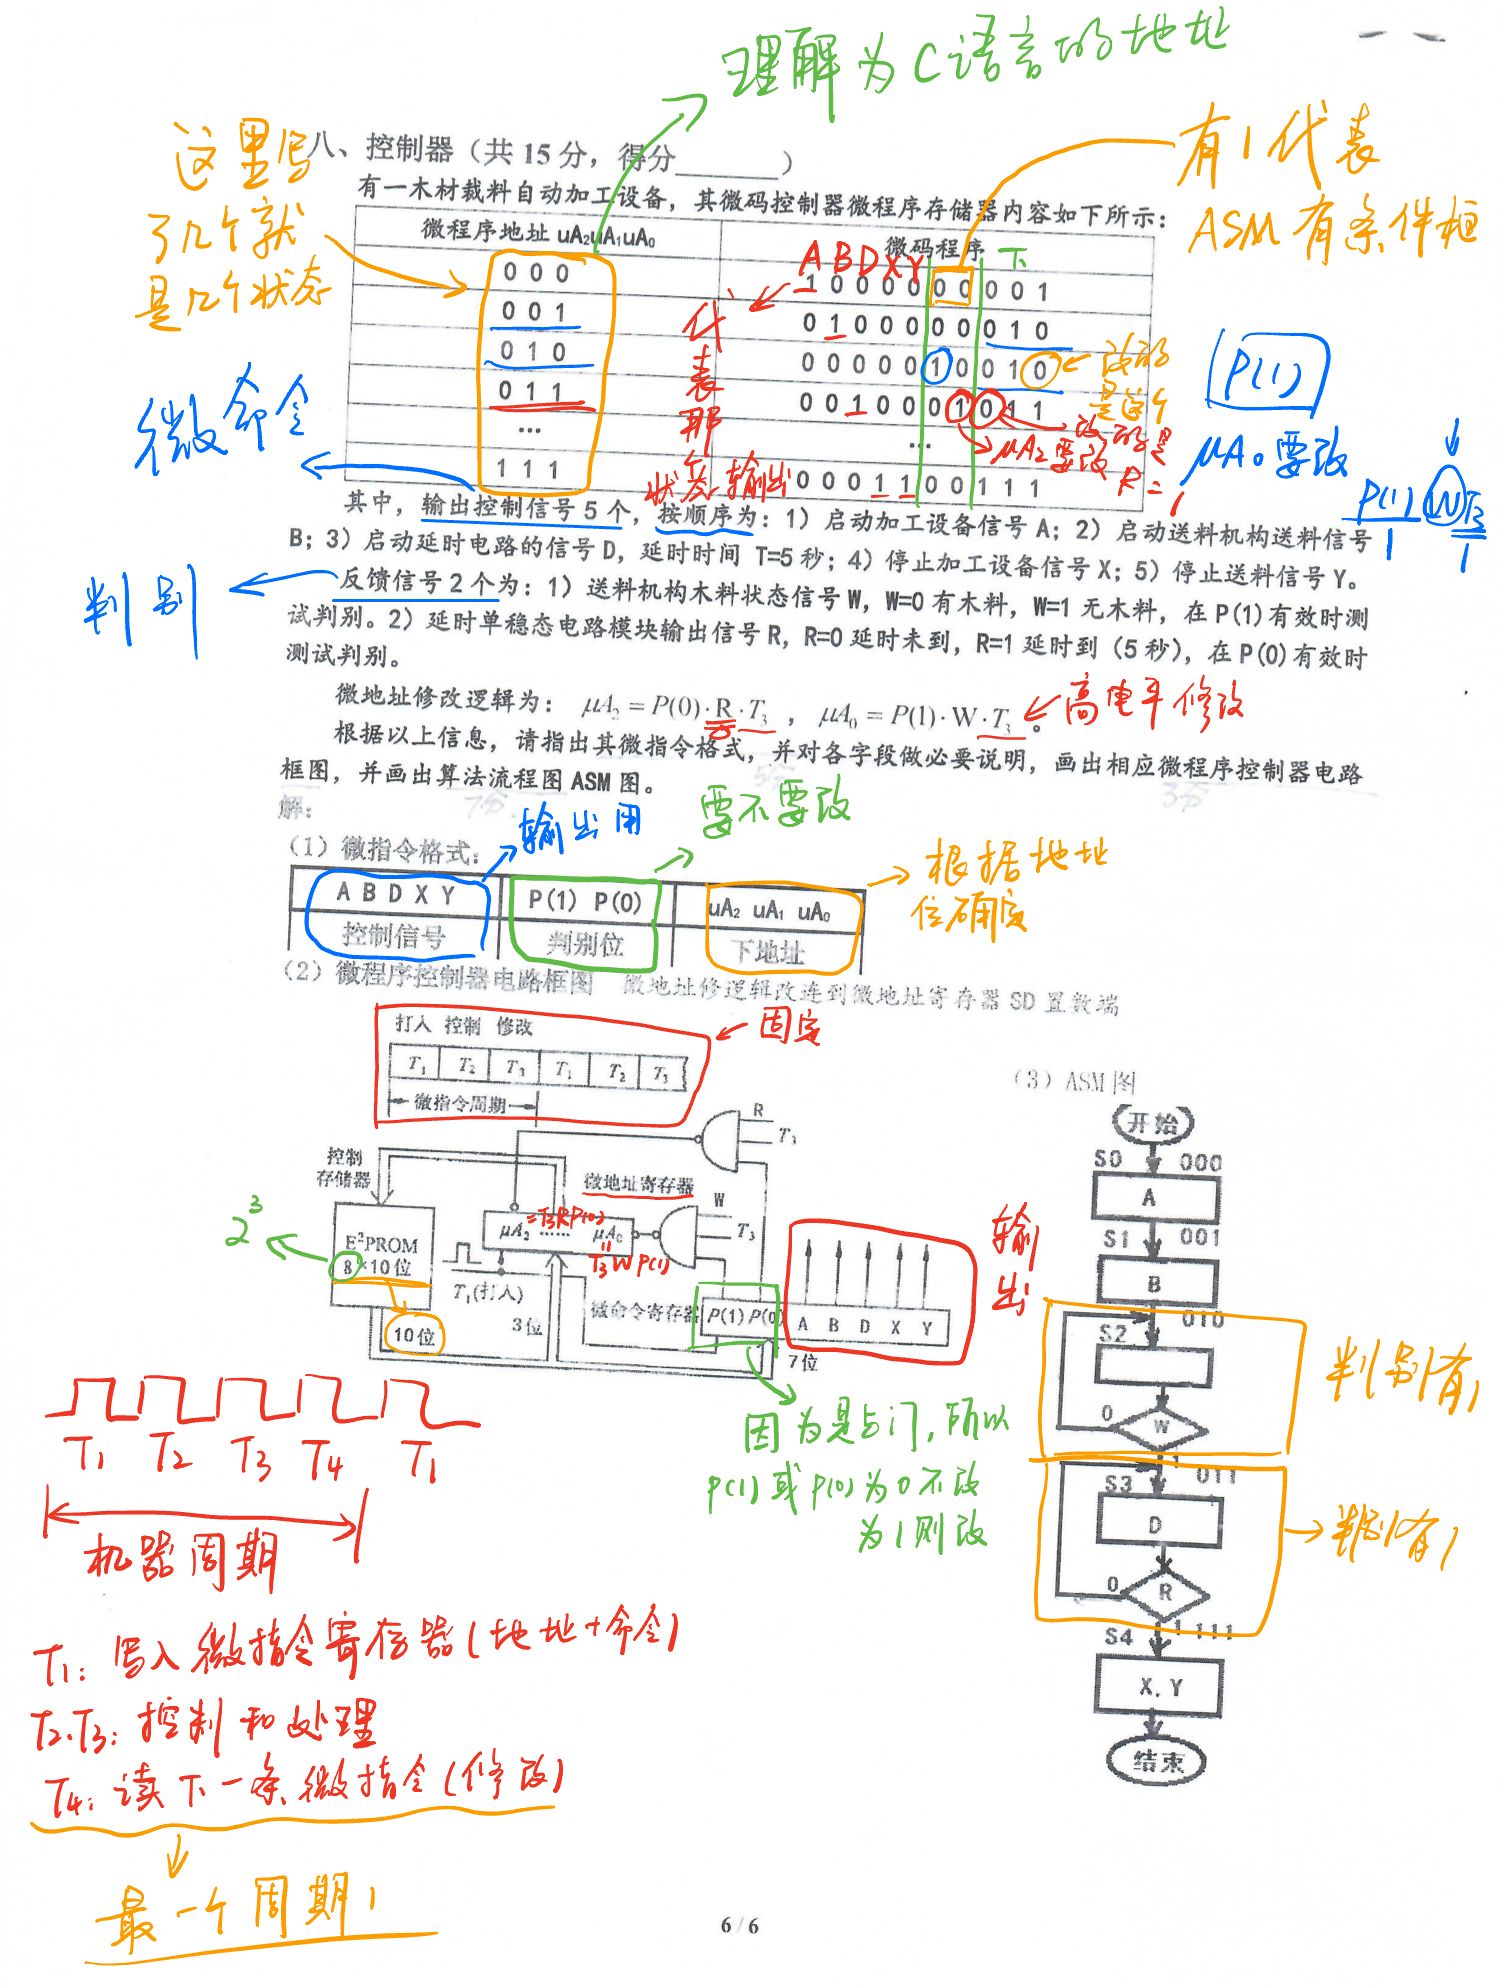 理解为C语言的地址
这里写
了几个就
是几个状态
八、控制器（共 15 分，得分_______）
有1代表
ASM有条件框
有一木材裁料自动加工设备，其微码控制器微程序存储器内容如下所示：
微程序地址 uA₂uA₁uA₀
微码程序
A B D X Y
下
0 0 0
1 0 0 0 0 0 0 0 0 1
0 0 1
0 1 0 0 0 0 0 0 1 0
0 1 0
0 0 0 0 0 1 0 0 1 0
0 1 1
0 0 1 0 0 0 1 0 1 1
…
…
1 1 1
0 0 0 1 1 0 0 1 1 1
代表那个状态输出
改的
是这个
改的是
R=1
μA₂要改
P(1)
μA₀要改
P(1) W T₃
1 1
微命令
判别
其中，输出控制信号 5 个，按顺序为：1）启动加工设备信号 A；2）启动送料机构送料信号
B；3）启动延时电路的信号 D，延时时间 T=5 秒；4）停止加工设备信号 X；5）停止送料信号 Y。
反馈信号 2 个为：1）送料机构木料状态信号 W，W=0 有木料，W=1 无木料，在 P(1)有效时测
试判别。2）延时单稳态电路模块输出信号 R，R=0 延时未到，R=1 延时到（5 秒），在 P(0)有效时
测试判别。
微地址修改逻辑为： μA₂ = P(0)·R·T₃ ， μA₀ = P(1)·W·T₃ 。
高电平修改
根据以上信息，请指出其微指令格式，并对各字段做必要说明，画出相应微程序控制器电路
框图，并画出算法流程图 ASM 图。
7分
5分
3分
解：
（1）微指令格式：
输出用
要不要改
根据地址
位确定
A B D X Y
P(1) P(0)
uA₂ uA₁ uA₀
控制信号
判别位
下地址
（2）微程序控制器电路框图 微地址修逻辑改连到微地址寄存器 SD 置数端
打入 控制 修改
固定
T₁ T₂ T₃ T₁ T₂ T₃
微指令周期
（3）ASM 图
R
T₃
控制
存储器
微地址寄存器
W
T₃
2³
E²PROM
8 *10 位
μA₂ …… μA₀
=T₃RP(0)
T₃WP(1)
T₁(打入)
3 位
10 位
微命令寄存器
P(1) P(0) A B D X Y
7 位
输出
因为是与门，所以
P(1)或P(0)为0不改
为1则改
开始
S0 000
A
S1 001
B
010
S2
0 W
1
011
S3
D
0 R
1
S4 111
X, Y
结束
判别有1
判别有1
T₁ T₂ T₃ T₄ T₁
机器周期
T₁：写入微指令寄存器(地址+命令)
T₂.T₃：控制和处理
T₄：读下一条微指令(修改)
最一个周期1
6 / 6